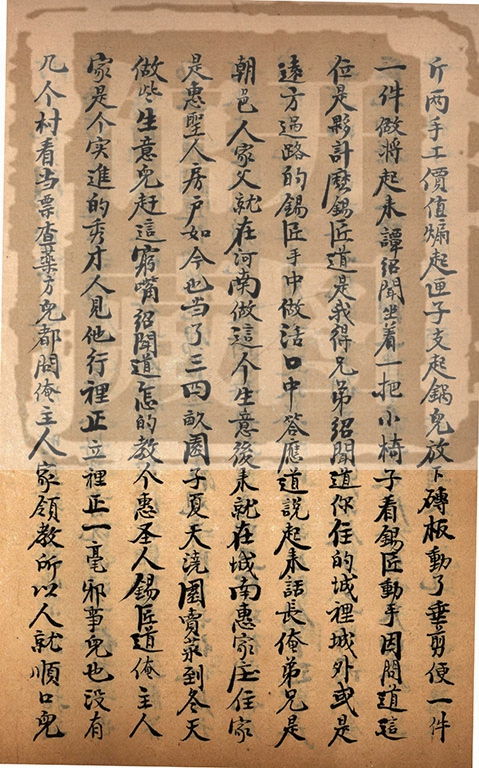 斤两手工價值煽起匣子支起鍋兒放下磚板動了垂剪便一件
一件做將起来譚绍聞坐着一把小椅子看錫匠動手因問道這
位是夥計麽錫匠道是我得兄弟绍聞道你住的城裡城外或是
遠方過路的錫匠手中做活口中答應道說起来話長俺弟兄是
朝邑人家父就在河南做這个生意後来就在城南惠家庄住家
是惠聖人房户如今也当了三四畝園子夏天澆園賣菜到冬天
做些生意兒赶這窮嘴绍聞道怎的教个惠圣人錫匠道俺主人
家是个实進的秀才人見他行裡正立裡正一毫邪事兒也没有
几个村看当票查藥方兒都問俺主人家領教所以人就順口兒